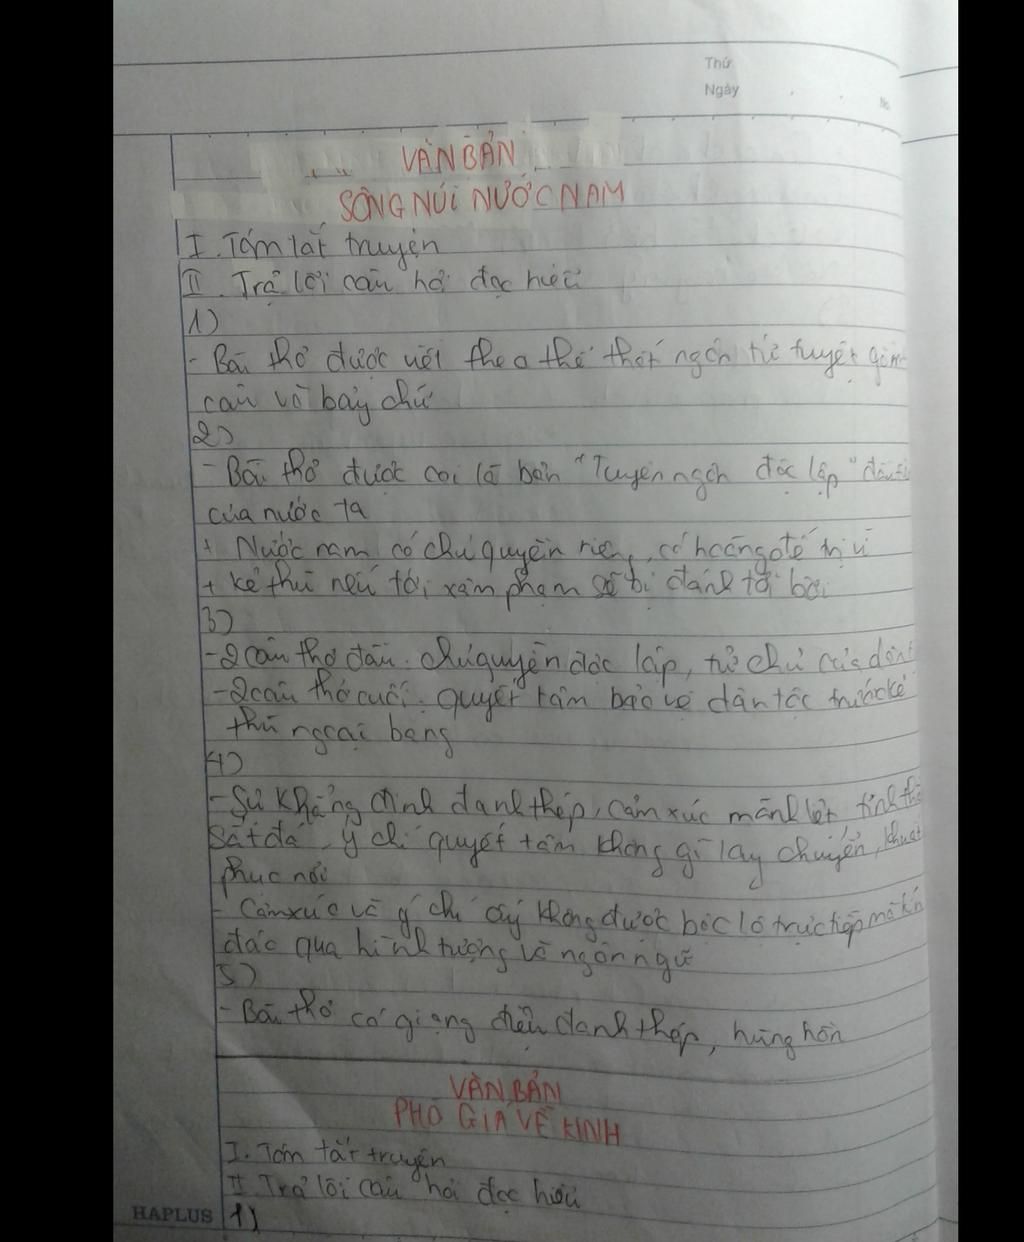 Thứ
Ngày
VĂN BẢN
SÔNG NÚI NƯỚC NAM
I. Tóm tắt truyện
II. Trả lời câu hỏi đọc hiểu
1)
- Bài thơ được viết theo thể thất ngôn tứ tuyệt gồm
câu và bảy chữ
2)
- Bài thơ được coi là bản "Tuyên ngôn độc lập"
của nước ta
+ Nước nam có chủ quyền riêng, có hoàng đế trị vì
+ kẻ thù nếu tới xâm phạm sẽ bị đánh tơi bời
3)
- 2 câu thơ đầu: chủ quyền độc lập, tự chủ của dân
- 2 câu thơ cuối: quyết tâm bảo vệ dân tộc trước kẻ
thù ngoại bang
4)
- Sự khẳng định đanh thép, cảm xúc mãnh liệt, tinh thần
sắt đá, ý chí quyết tâm không gì lay chuyển, khuất
phục nổi
- Cảm xúc và ý chí ấy không được bộc lộ trực tiếp mà kín
đáo qua hình tượng và ngôn ngữ
5)
- Bài thơ có giọng điệu đanh thép, hùng hồn
VĂN BẢN
PHÒ GIÁ VỀ KINH
I. Tóm tắt truyện
II. Trả lời câu hỏi đọc hiểu
HAPLUS 1)